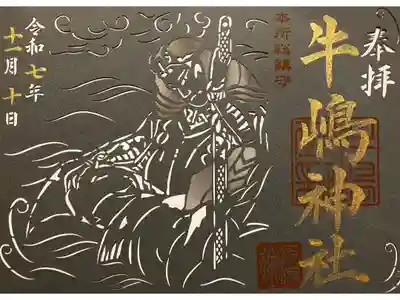 奉拝
牛嶋神社
本所總鎮守
令和七年
十二月十日